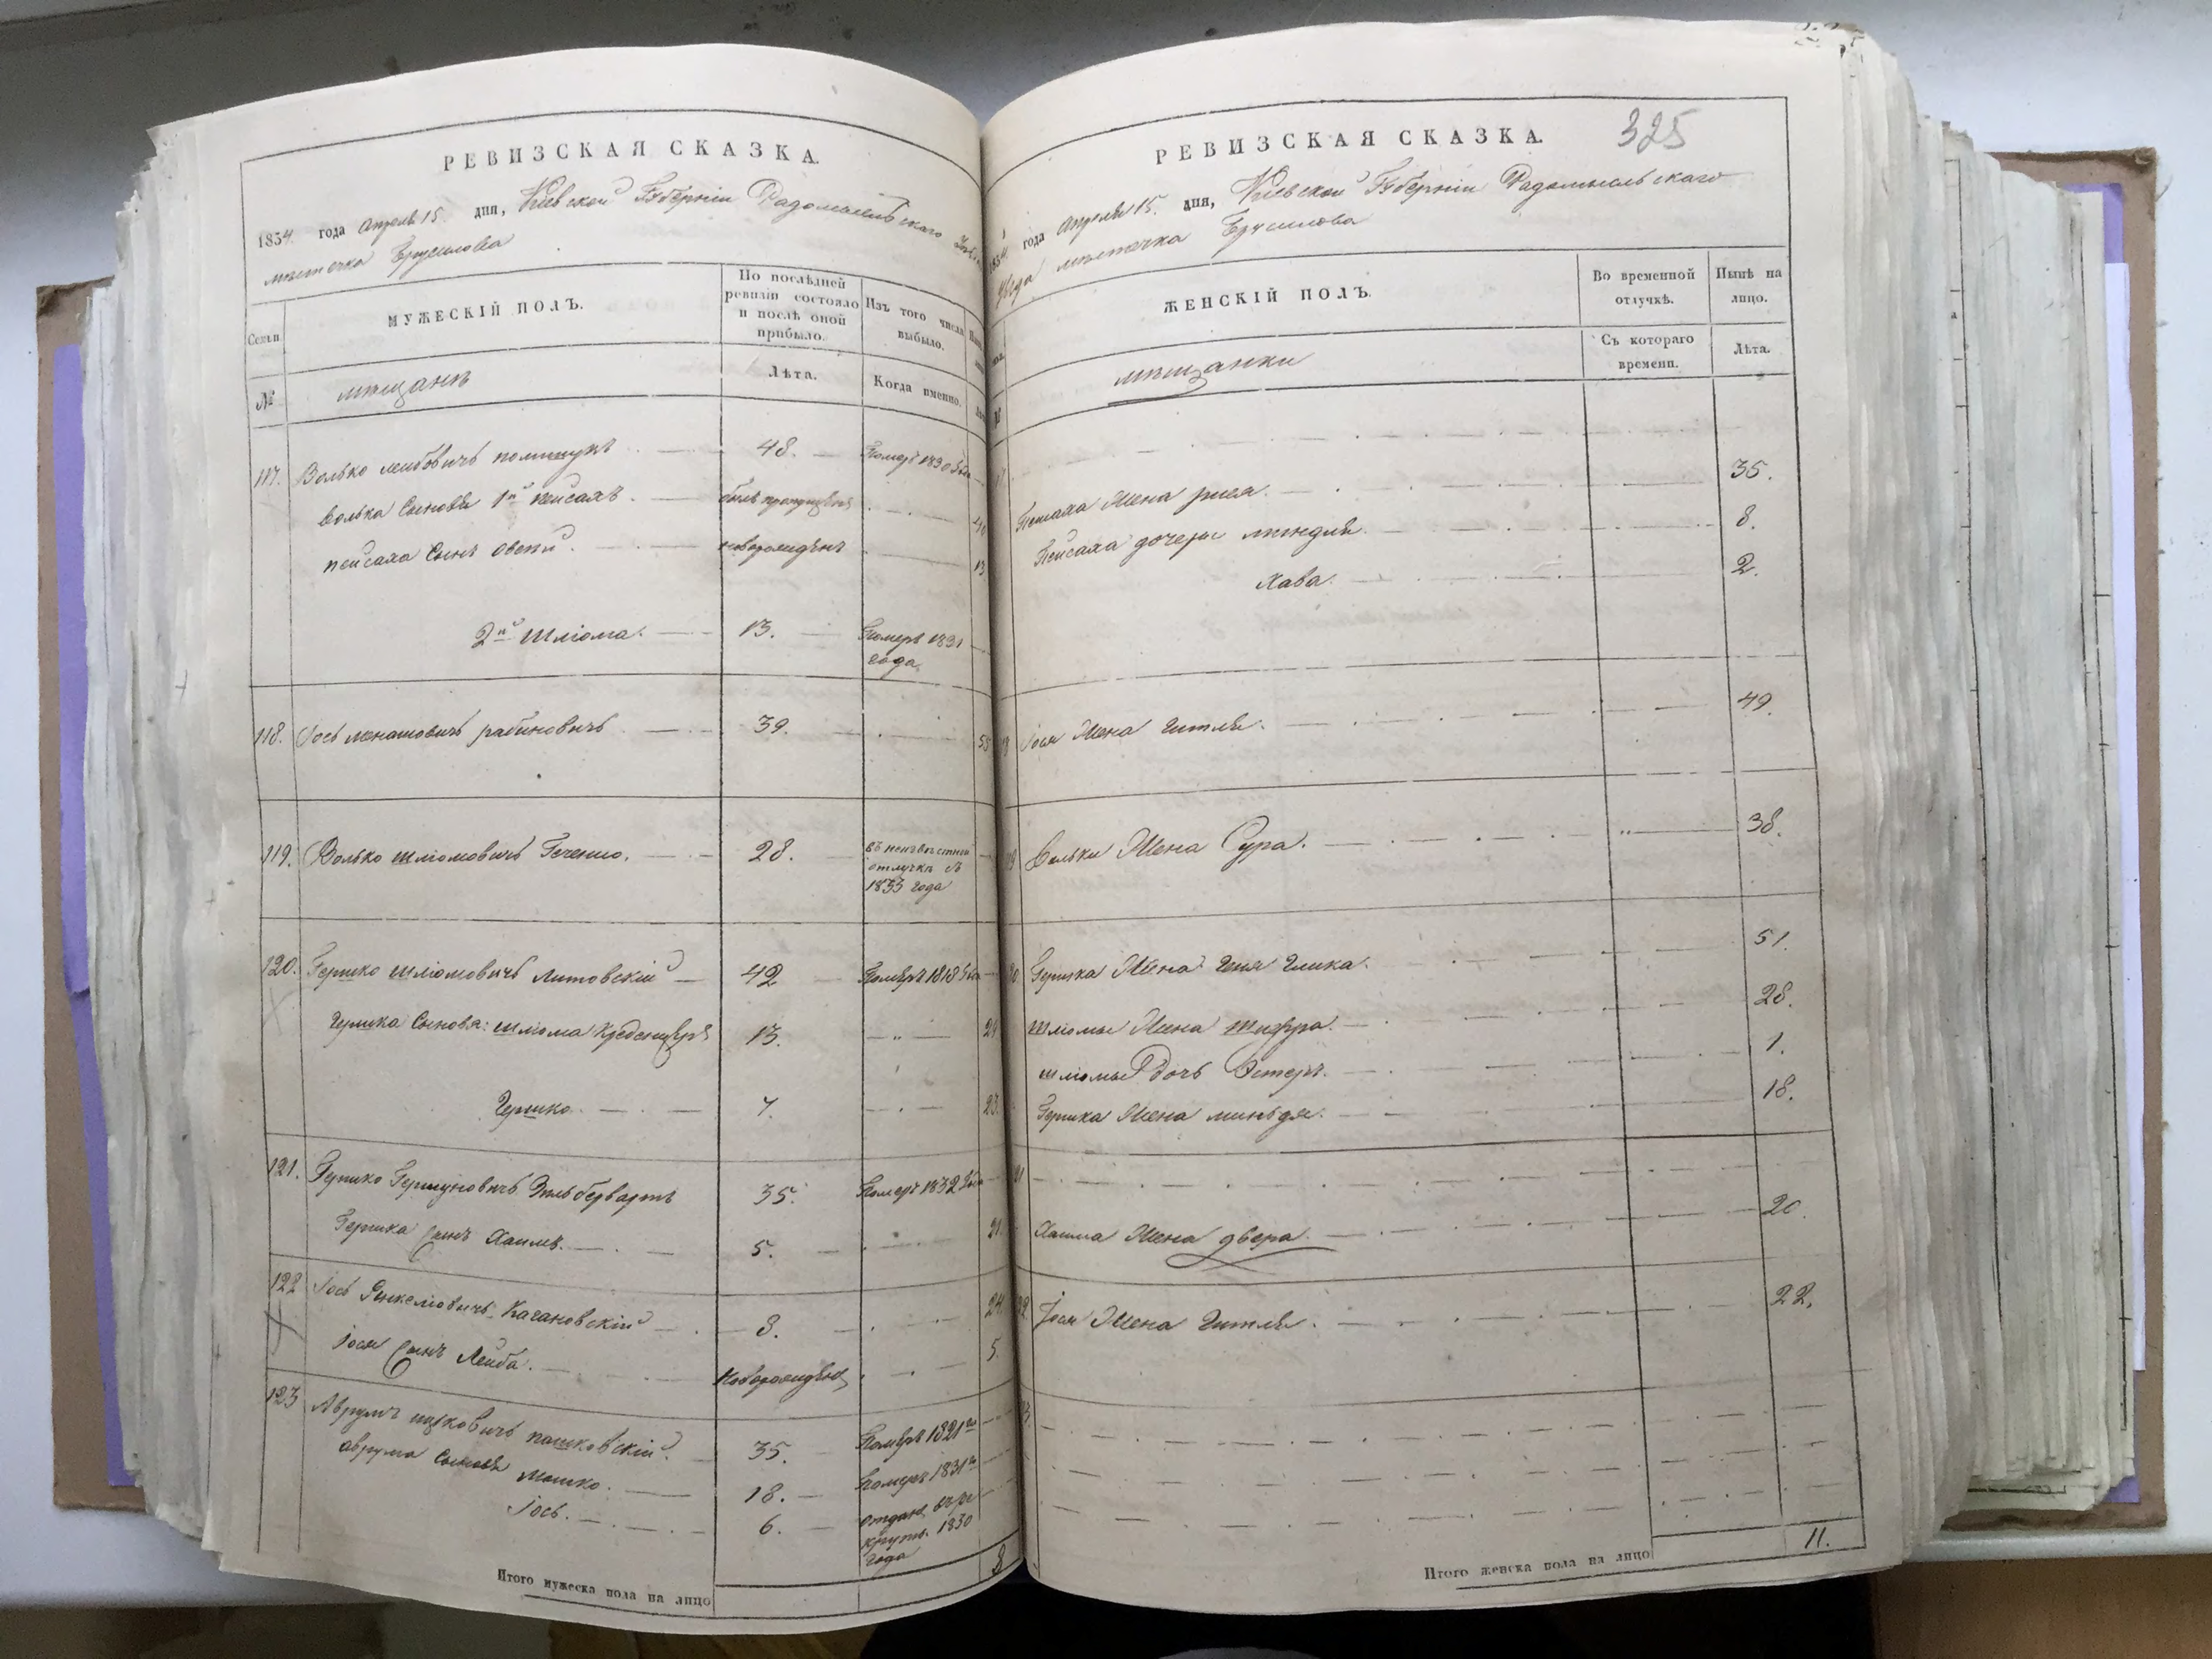 РЕВИЗСКАЯ СКАЗКА.
1834 года Апреля 15. дня, Кіевской Губерніи Радомысльскаго
мѣстечка Брусилова
Семьи МУЖЕСКІЙ ПОЛЪ. По послѣдней ревизіи состояло и послѣ оной прибыло. Изъ того числа выбыло.
№ мѣщанѣ Лѣта. Когда именно.
117. Волько Лейбовичъ 48. Померъ 1830
Волька Сыновья 1й Пейсахъ. былъ пропущенъ 40
Пейсаха Сынъ Овсей. новорожденъ 13
2й Шліома. 13. Померъ 1831
года
118. Іось Менашовичъ Рабиновичъ 39. 55
119. Волько Шліомовичъ 28. въ неизвѣстной
отлучкѣ съ
1833 года
120. Гершко Шліомовичъ Литовскій 42 Померъ 1818
Гершка Сыновя: Шліома 13. 29
Гершко. 7. 23.
121. Гершко 35. Померъ 1832
Гершка Сынъ Хаимъ. 5. 21.
122 Іось Янкеліовичъ Кагановскій 8. 24.
Іося Сынъ Лейба. Новорожденъ 5.
123 Аврумъ Ицковичъ Пашковскій. 35. Померъ 1821го
Аврума Сыновя Мошко. 18. Померъ 1831го
Іось. 6. отданъ въ ре
крути. 1830
года
Итого мужеска пола на лицо 8
325
РЕВИЗСКАЯ СКАЗКА.
1834 года Апреля 15. дня, Кіевской Губерніи Радомысльскаго
уѣзда мѣстечка Брусилова
ЖЕНСКІЙ ПОЛЪ. Во временной отлучкѣ. Нынѣ на лицо.
№ мѣщанки Съ котораго времени. Лѣта.
Пейсаха Жена 35.
Пейсаха дочеры Миндля. 8.
Хава. 2.
Іося Жена Гитля. 49.
Волька Жена Сура. 38.
Гершка Жена Геня Глика. 51.
Шліомы Жена Шифра. 28.
Шліомы дочь Эстеръ. 1.
Гершка Жена Миньдя. 18.
Хаима Жена Двера. 20.
Іося Жена Гитля. 22.
Итого женска пола на лицо 11.